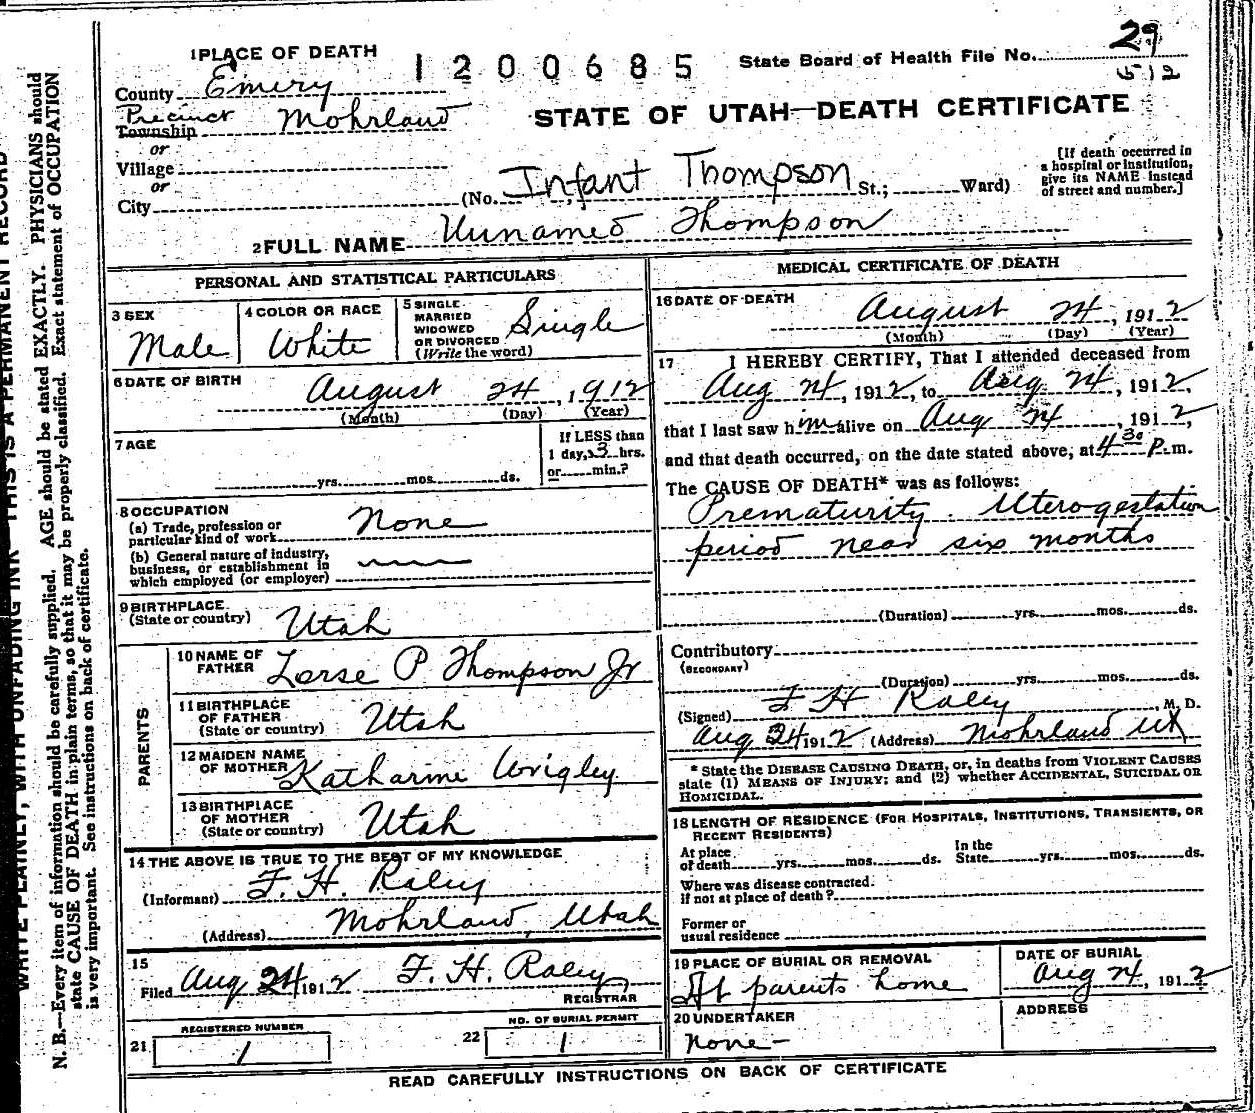 1 PLACE OF DEATH
1200685
State Board of Health File No. 29
512
County Emery
Precinct Mohrland
Township
or
Village
or
City
STATE OF UTAH—DEATH CERTIFICATE
(No. Infant Thompson St.; Ward)
[If death occurred in
a hospital or institution,
give its NAME instead
of street and number.]
2 FULL NAME Unnamed Thompson
PERSONAL AND STATISTICAL PARTICULARS
3 SEX
Male
4 COLOR OR RACE
White
5 SINGLE
MARRIED
WIDOWED
OR DIVORCED
(Write the word)
Single
6 DATE OF BIRTH
August 24, 1912
(Month) (Day) (Year)
7 AGE
yrs. mos. ds.
If LESS than
1 day, 3 hrs.
or min.?
8 OCCUPATION
(a) Trade, profession or
particular kind of work None
(b) General nature of industry,
business, or establishment in
which employed (or employer)
9 BIRTHPLACE
(State or country) Utah
PARENTS
10 NAME OF
FATHER
Lorse P Thompson Jr
11 BIRTHPLACE
OF FATHER
(State or country) Utah
12 MAIDEN NAME
OF MOTHER
Katharine Wrigley
13 BIRTHPLACE
OF MOTHER
(State or country) Utah
14 THE ABOVE IS TRUE TO THE BEST OF MY KNOWLEDGE
(Informant) F. H. Raley
(Address) Mohrland, Utah
15
Filed Aug 24 1912 F. H. Raley
REGISTRAR
21
REGISTERED NUMBER
1
22
NO. OF BURIAL PERMIT
1
MEDICAL CERTIFICATE OF DEATH
16 DATE OF DEATH
August 24, 1912
(Month) (Day) (Year)
17 I HEREBY CERTIFY, That I attended deceased from
Aug 24, 1912, to Aug 24, 1912,
that I last saw him alive on Aug 24, 1912,
and that death occurred, on the date stated above, at 4 30 P.m.
The CAUSE OF DEATH* was as follows:
Prematurity. Uterogestation
period near six months
(Duration) yrs. mos. ds.
Contributory
(SECONDARY)
(Duration) yrs. mos. ds.
(Signed) F H Raley, M. D.
Aug 24 1912 (Address) Mohrland Ut
* State the DISEASE CAUSING DEATH, or, in deaths from VIOLENT CAUSES
state (1) MEANS OF INJURY; and (2) whether ACCIDENTAL, SUICIDAL OR
HOMICIDAL.
18 LENGTH OF RESIDENCE (FOR HOSPITALS, INSTITUTIONS, TRANSIENTS, OR
RECENT RESIDENTS)
At place
of death yrs. mos. ds.
In the
State yrs. mos. ds.
Where was disease contracted.
if not at place of death?
Former or
usual residence
19 PLACE OF BURIAL OR REMOVAL
At parents home
DATE OF BURIAL
Aug 24, 1912
20 UNDERTAKER
None
ADDRESS
READ CAREFULLY INSTRUCTIONS ON BACK OF CERTIFICATE
WRITE PLAINLY, WITH UNFADING INK—THIS IS A PERMANENT RECORD
N. B.—Every item of information should be carefully supplied. AGE should be stated EXACTLY. PHYSICIANS should
state CAUSE OF DEATH in plain terms, so that it may be properly classified. Exact statement of OCCUPATION
is very important. See instructions on back of certificate.